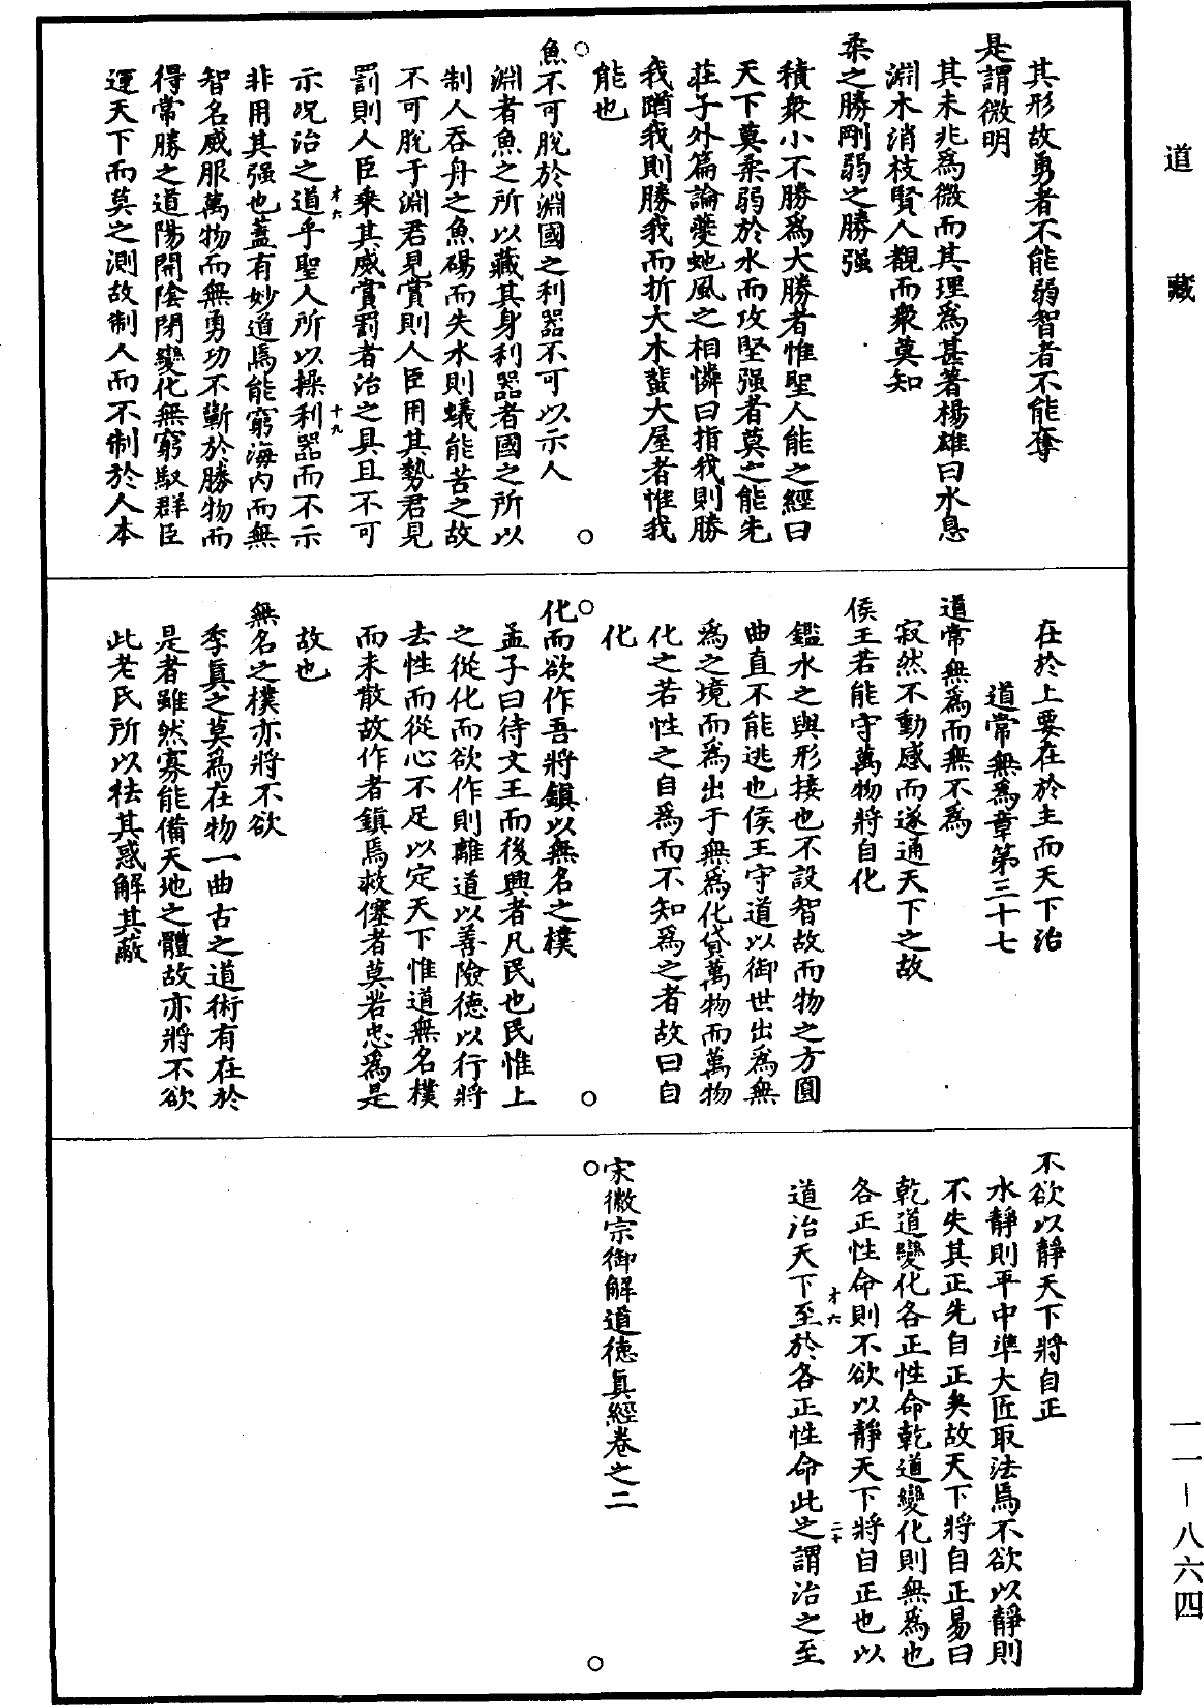 道藏
其形故勇者不能弱智者不能奪
是謂微明
其未兆為微而其理為甚著楊雄曰水息
淵木消枝賢人觀而衆莫知
柔之勝剛弱之勝强
積衆小不勝為大勝者惟聖人能之經曰
天下莫柔弱於水而攻堅强者莫之能先
莊子外篇論夔虵風之相憐曰指我則勝
我䠓我則勝我而折大木蜚大屋者惟我
能也
魚不可脫於淵國之利器不可以示人
淵者魚之所以藏其身利器者國之所以
制人吞舟之魚碭而失水則蟻能苦之故
不可脫于淵君見賞則人臣用其勢君見
罰則人臣乘其威賞罰者治之具且不可
示况治之道乎聖人所以操利器而不示
才六
十九
非用其强也蓋有妙道焉能窮海内而無
智名威服萬物而無勇功不蘄於勝物而
得常勝之道陽開陰閉變化無窮馭群臣
運天下而莫之測故制人而不制於人本
在於上要在於主而天下治
道常無為章第三十七
道常無為而無不為
寂然不動感而遂通天下之故
侯王若能守萬物將自化
鑑水之與形接也不設智故而物之方圓
曲直不能逃也侯王守道以御世出為無
為之境而為出于無為化貸萬物而萬物
化之若性之自為而不知為之者故曰自
化
化而欲作吾將鎮以無名之樸
孟子曰待文王而後興者凡民也民惟上
之從化而欲作則離道以善險德以行將
去性而從心不足以定天下惟道無名樸
而未散故作者鎮焉救僿者莫若忠為是
故也
無名之樸亦將不欲
季真之莫為在物一曲古之道術有在於
是者雖然寡能備天地之體故亦將不欲
此老氏所以袪其惑解其蔽
不欲以靜天下將自正
水靜則平中準大匠取法焉不欲以靜則
不失其正先自正矣故天下將自正易曰
乾道變化各正性命乾道變化則無為也
各正性命則不欲以靜天下將自正也以
才六
二十
道治天下至於各正性命此之謂治之至
宋徽宗御解道德真經卷之二
一一—八六四